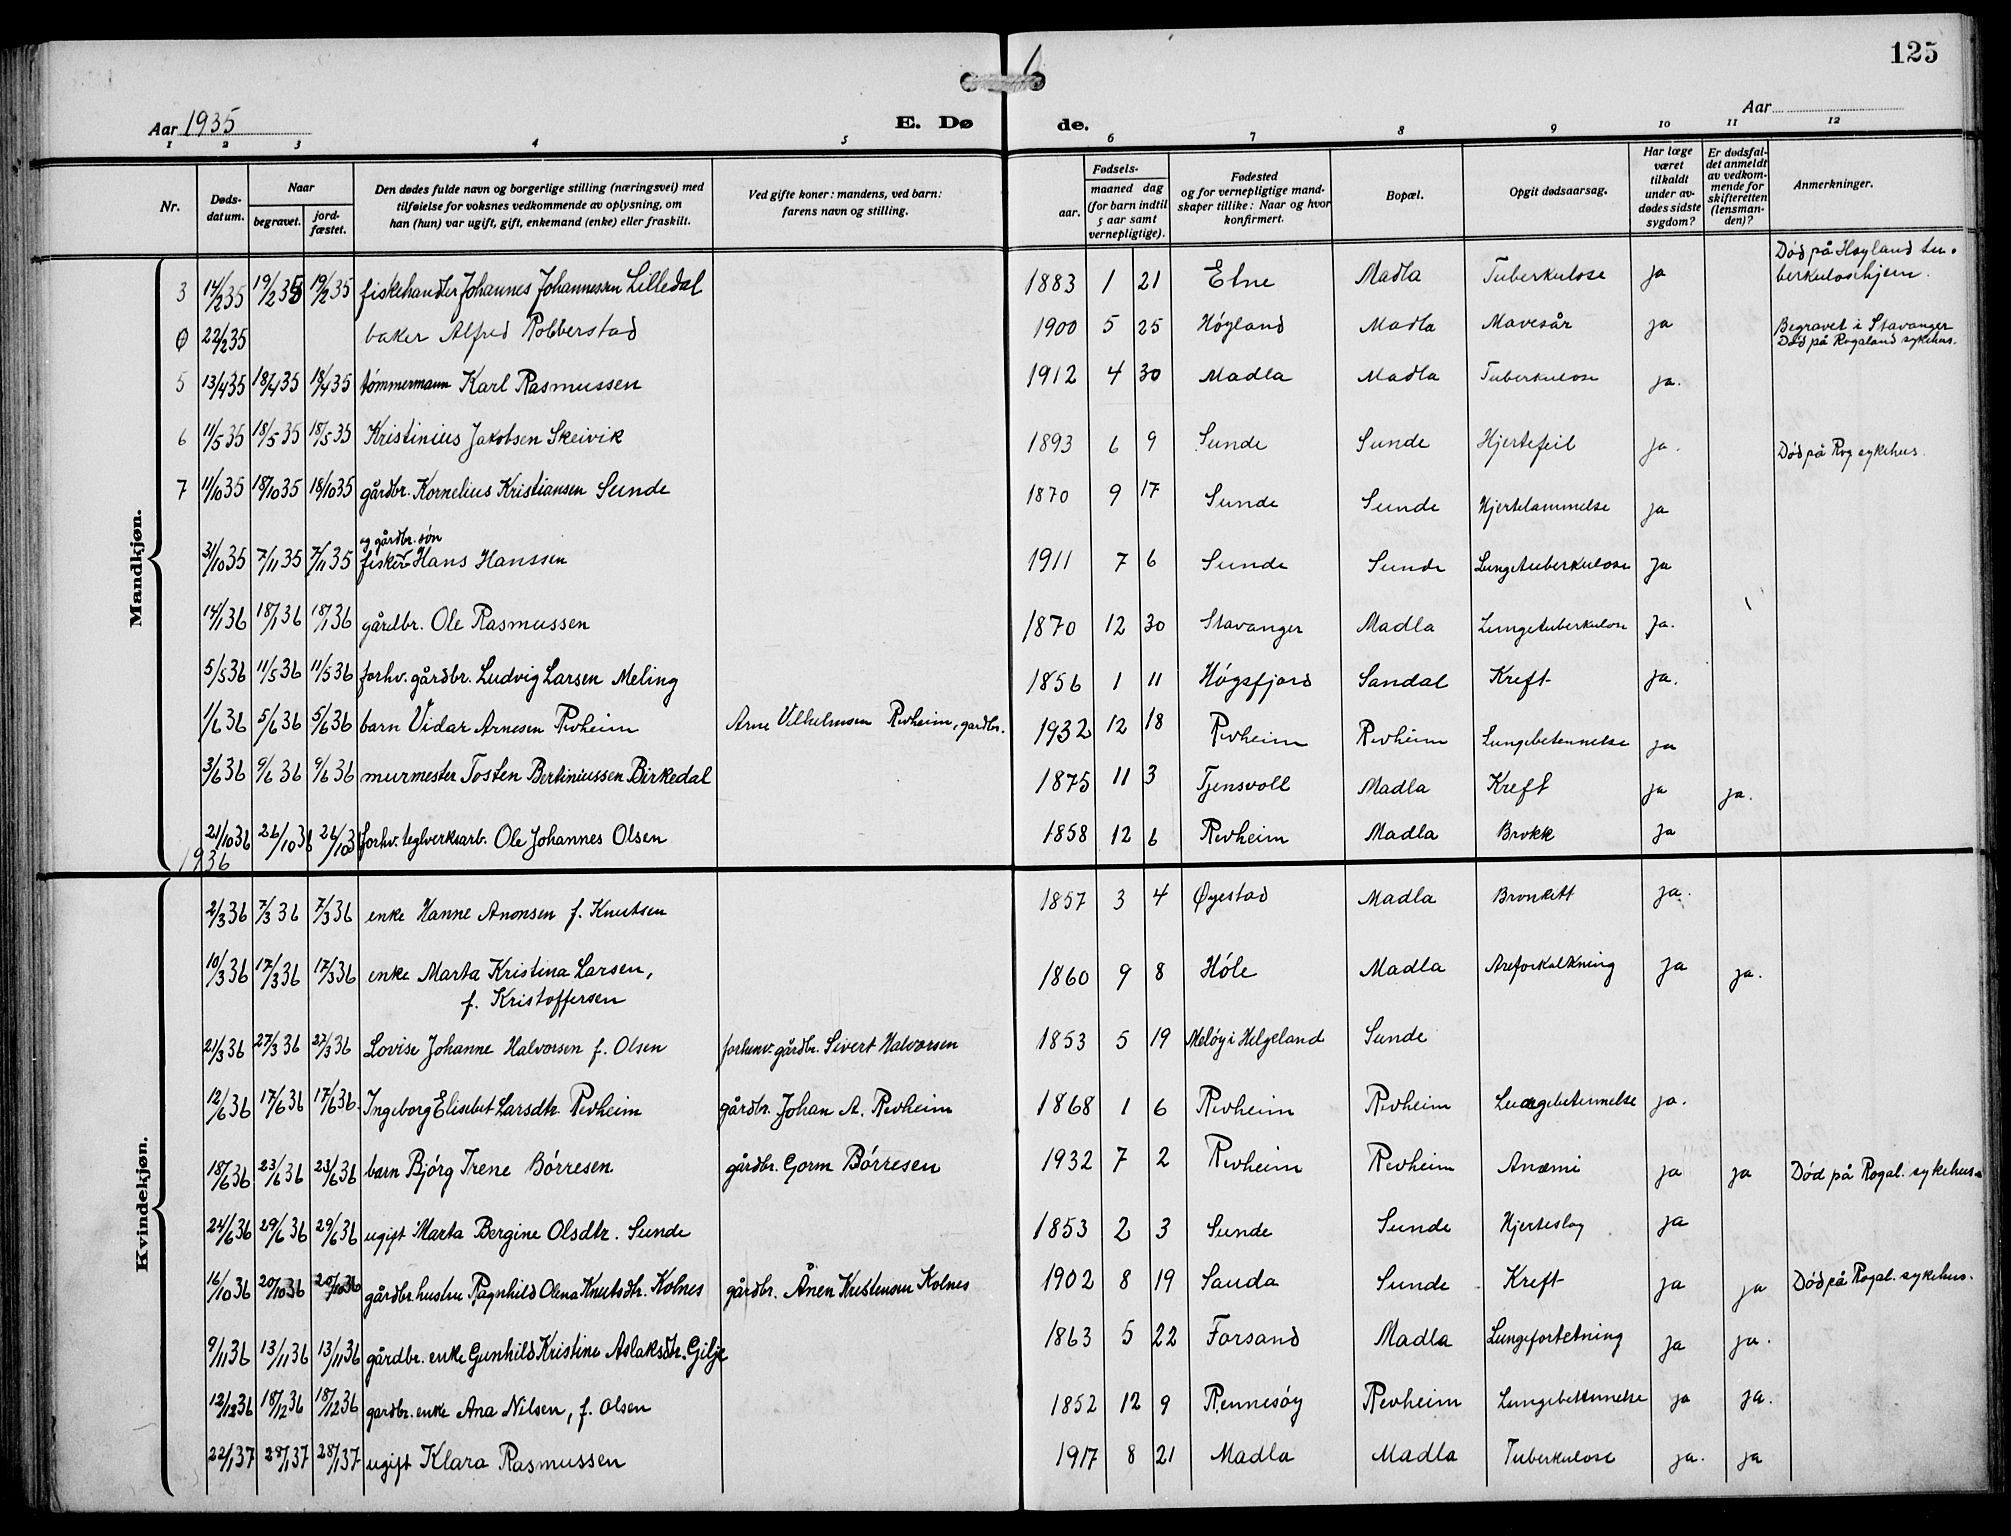 125
Aar 1935
E. Dø de.
Aar
1 2 3 4 5 6 7 8 9 10 11 12
Nr. | Døds-datum. | Naar begravet. | jord-fæstet. | Den dødes fulde navn og borgerlige stilling (næringsvei) med tilføielse for voksnes vedkommende av oplysning, om han (hun) var ugift, gift, enkemand (enke) eller fraskilt. | Ved gifte koner: mandens, ved barn: farens navn og stilling. | Fødsels- aar. | maaned dag (for barn indtil 5 aar samt vernepligtige). | Fødested og for vernepligtige mandskaper tillike: Naar og hvor konfirmert. | Bopæl. | Opgit dødsaarsag. | Har læge været tilkaldt under avdødes sidste sygdom? | Er dødsfaldet anmeldt av vedkommende for skifteretten (lensmanden)? | Anmerkninger.
Mandkjøn.
3 14/2 35 19/2 35 19/2 35 fiskehandler Johannes Johannessen Lilledal 1883 1 21 Etne Madla Tuberkulose ja Død på Høyland tuberkulosehjem.
0 22/2 35 baker Alfred Robberstad 1900 5 25 Høyland Madla Mavesår ja Begravet i Stavanger Død på Rogaland sykehus.
5 13/4 35 18/4 35 18/4 35 tømmermann Karl Rasmussen 1912 4 30 Madla Madla Tuberkulose ja.
6 11/5 35 18/5 35 18/5 35 Kristinius Jakobsen Skeivik 1893 6 9 Sunde Sunde Hjertefeil ja. Død på Rog sykehus.
7 11/10 35 18/10 35 18/10 35 gårdbr. Kornelius Kristiansen Sunde 1870 9 17 Sunde Sunde Hjertelammelse ja
31/10 35 7/11 35 7/11 35 fisker og gårdbr. søn Hans Hanssen 1911 7 6 Sunde Sunde Lungetuberkulose ja
14/1 36 18/1 36 18/1 36 gårdbr. Ole Rasmussen 1870 12 30 Stavanger Madla Lungetuberkulose ja.
5/5 36 11/5 36 11/5 36 forhv. gårdbr. Ludvig Larsen Meling 1856 1 11 Høgsfjord Sandal Kreft ja.
1/6 36 5/6 36 5/6 36 barn Vidar Arnesen Revheim Arne Vilhelmsen Revheim, gardbr. 1932 12 18 Revheim Revheim Lungebetennelse ja
3/6 36 9/6 36 9/6 36 murmester Tosten Bertiniussen Birkedal 1875 11 3 Tjensvoll Madla Kreft ja ja.
21/10 36 26/10 36 26/10 3 forhv. teglverksarb. Ole Johannes Olsen 1858 12 6 Revheim Madla Brokk ja
1936
Kvindekjøn.
2/3 36 7/3 36 7/3 36 enke Hanne Anonsen f. Knutsen 1857 3 4 Øyestad Madla Bronkitt ja.
10/3 36 17/3 36 17/3 36 enke Marta Kristina Larsen, f. Kristoffersen 1860 9 8 Høle Madla Areforkalkning ja ja.
21/3 36 27/3 36 27/3 36 Lovise Johanne Halvorsen f. Olsen forhenv. gårdbr. Sivert Halvorsen 1853 5 19 Meløy i Helgeland Sunde
12/6 36 17/6 36 17/6 36 Ingeborg Elisebet Larsdtr. Revheim gårdbr. Johan A. Revheim 1868 1 6 Revheim Revheim Lungebetennelse ja.
18/6 36 23/6 36 23/6 36 barn Bjørg Irene Børresen gårdbr. Gorm Børresen 1932 7 2 Revheim Revheim Anæmi ja ja Død på Rogal. sykehus.
24/6 36 29/6 36 29/6 36 ugift Marta Bergine Olsdtr. Sunde 1853 2 3 Sunde Sunde Hjerteslag ja
16/10 36 20/10 36 20/10 36 gårdbr. hustru Ragnhild Olena Knutsdtr. Kolnes gårdbr. Ånen Kristensen Kolnes 1902 8 19 Sauda Sunde Kreft ja ja Død på Rogal. sykehus.
9/11 36 13/11 36 13/11 36 gårdbr. enke Gunhild Kristine Aslaksdtr. Gilje 1863 5 22 Forsand Madla Lungefortetning ja ja.
12/12 36 18/12 36 18/12 36 gardbr. enke Ana Nilsen, f. Olsen 1852 12 9 Rennesøy Revheim Lungebetennelse ja ja.
22/1 37 28/1 37 28/1 37 ugift Klara Rasmussen 1917 8 21 Madla Madla Tuberkulose ja. ja